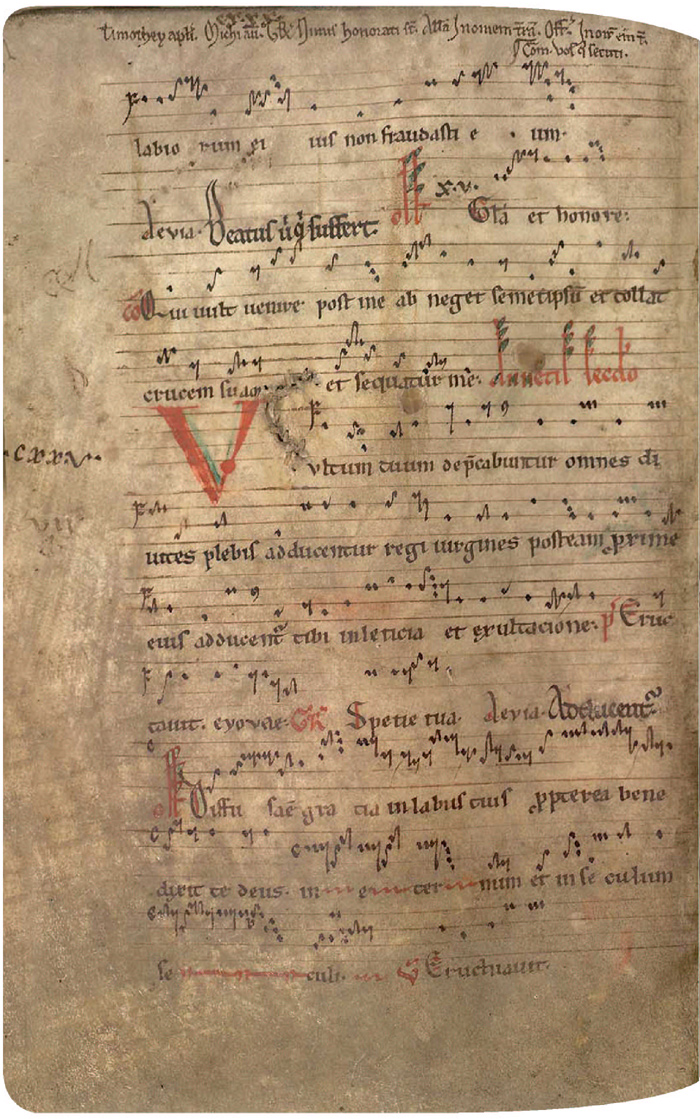 Timothey apłi. Michi aū. GR Nimis honorati st̄. Allā In omem trā. Off. In om̄ em t̄.
Com̄. vos q̇ secuti.
labio rum ei ius non fraudasti e um.
Aevia Beatus uir q̇ suffert. off x.v. Gła et honore.
co Qui uult uenire post me ab neget semetipsū et tollat
crucem suam et sequatur me. Anuncił sc̄do
CXXV
Vultum tuum dep̄cabuntur omnes di
uites plebis adducentur regi uirgines posteam proxime
eius adducent̄ tibi in leticia et exultacione. p̄ Eruc
tauit. evovae. GR Specie tua. Aevia. Adducent̄
off Diffu sa ē gra cia in labiis tuis ꝓpterea bene
dixit te deus. in e ter num et in se culum
se culi. V Eructuauit.